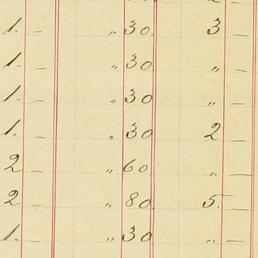 1. – „ 30. 3 –
1. – „ 30 „ –
1. – „ 30 „ –
1. – „ 30 2 –
2 – „ 60 „ –
2 – „ 80 5. –
1. – „ 30 „ –